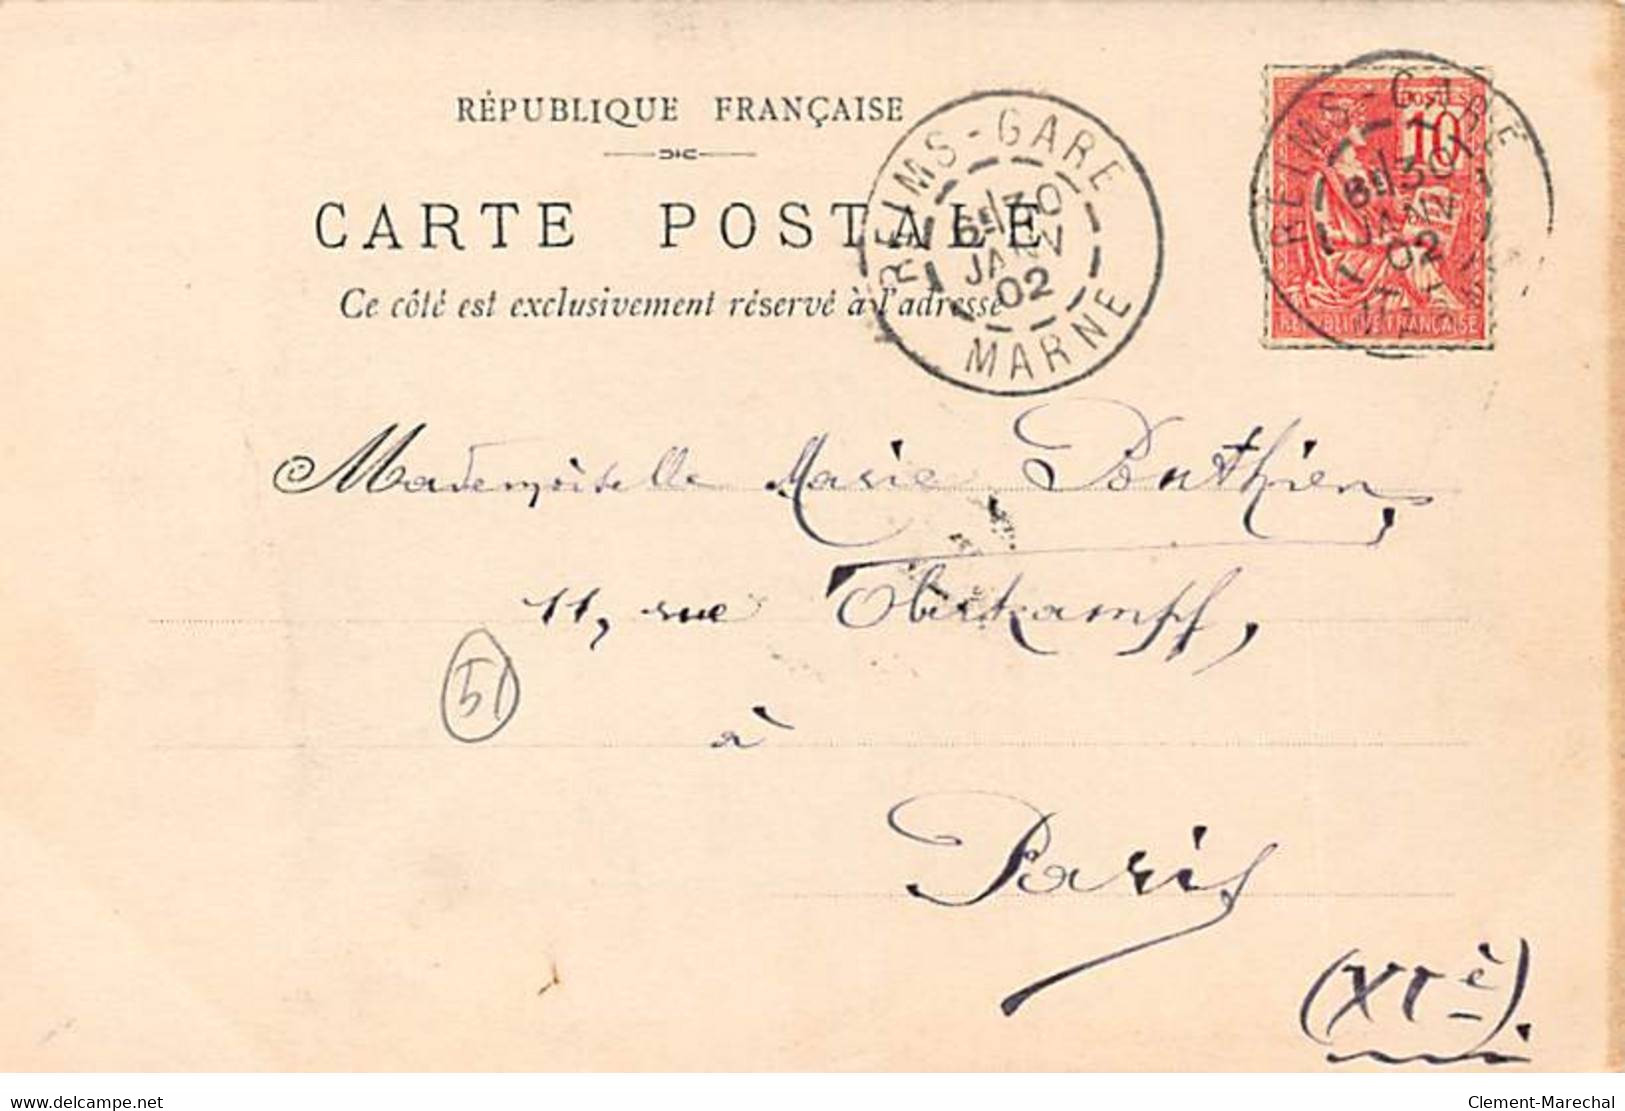 RÉPUBLIQUE FRANÇAISE
CARTE POSTALE
Ce côté est exclusivement réservé à l'adresse
REIMS-GARE
6E/30
JANV
02
MARNE
REIMS-GARE
6E/30
JANV
02
POSTES
10
REPUBLIQUE FRANÇAISE
Mademoiselle Marie Ponthien,
11, rue Oberkampf,
51
à
Paris
(XIè).
www.delcampe.net
Clement-Marechal